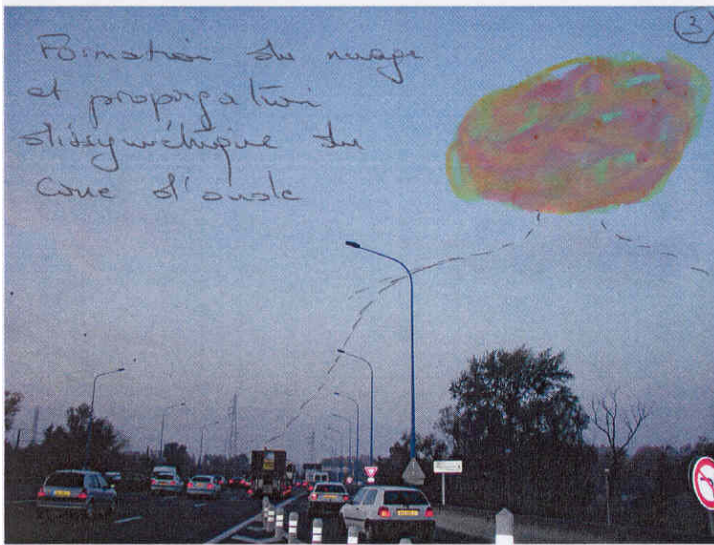 3
Formation du nuage
et propagation
dissymétrique du
cone d'onde